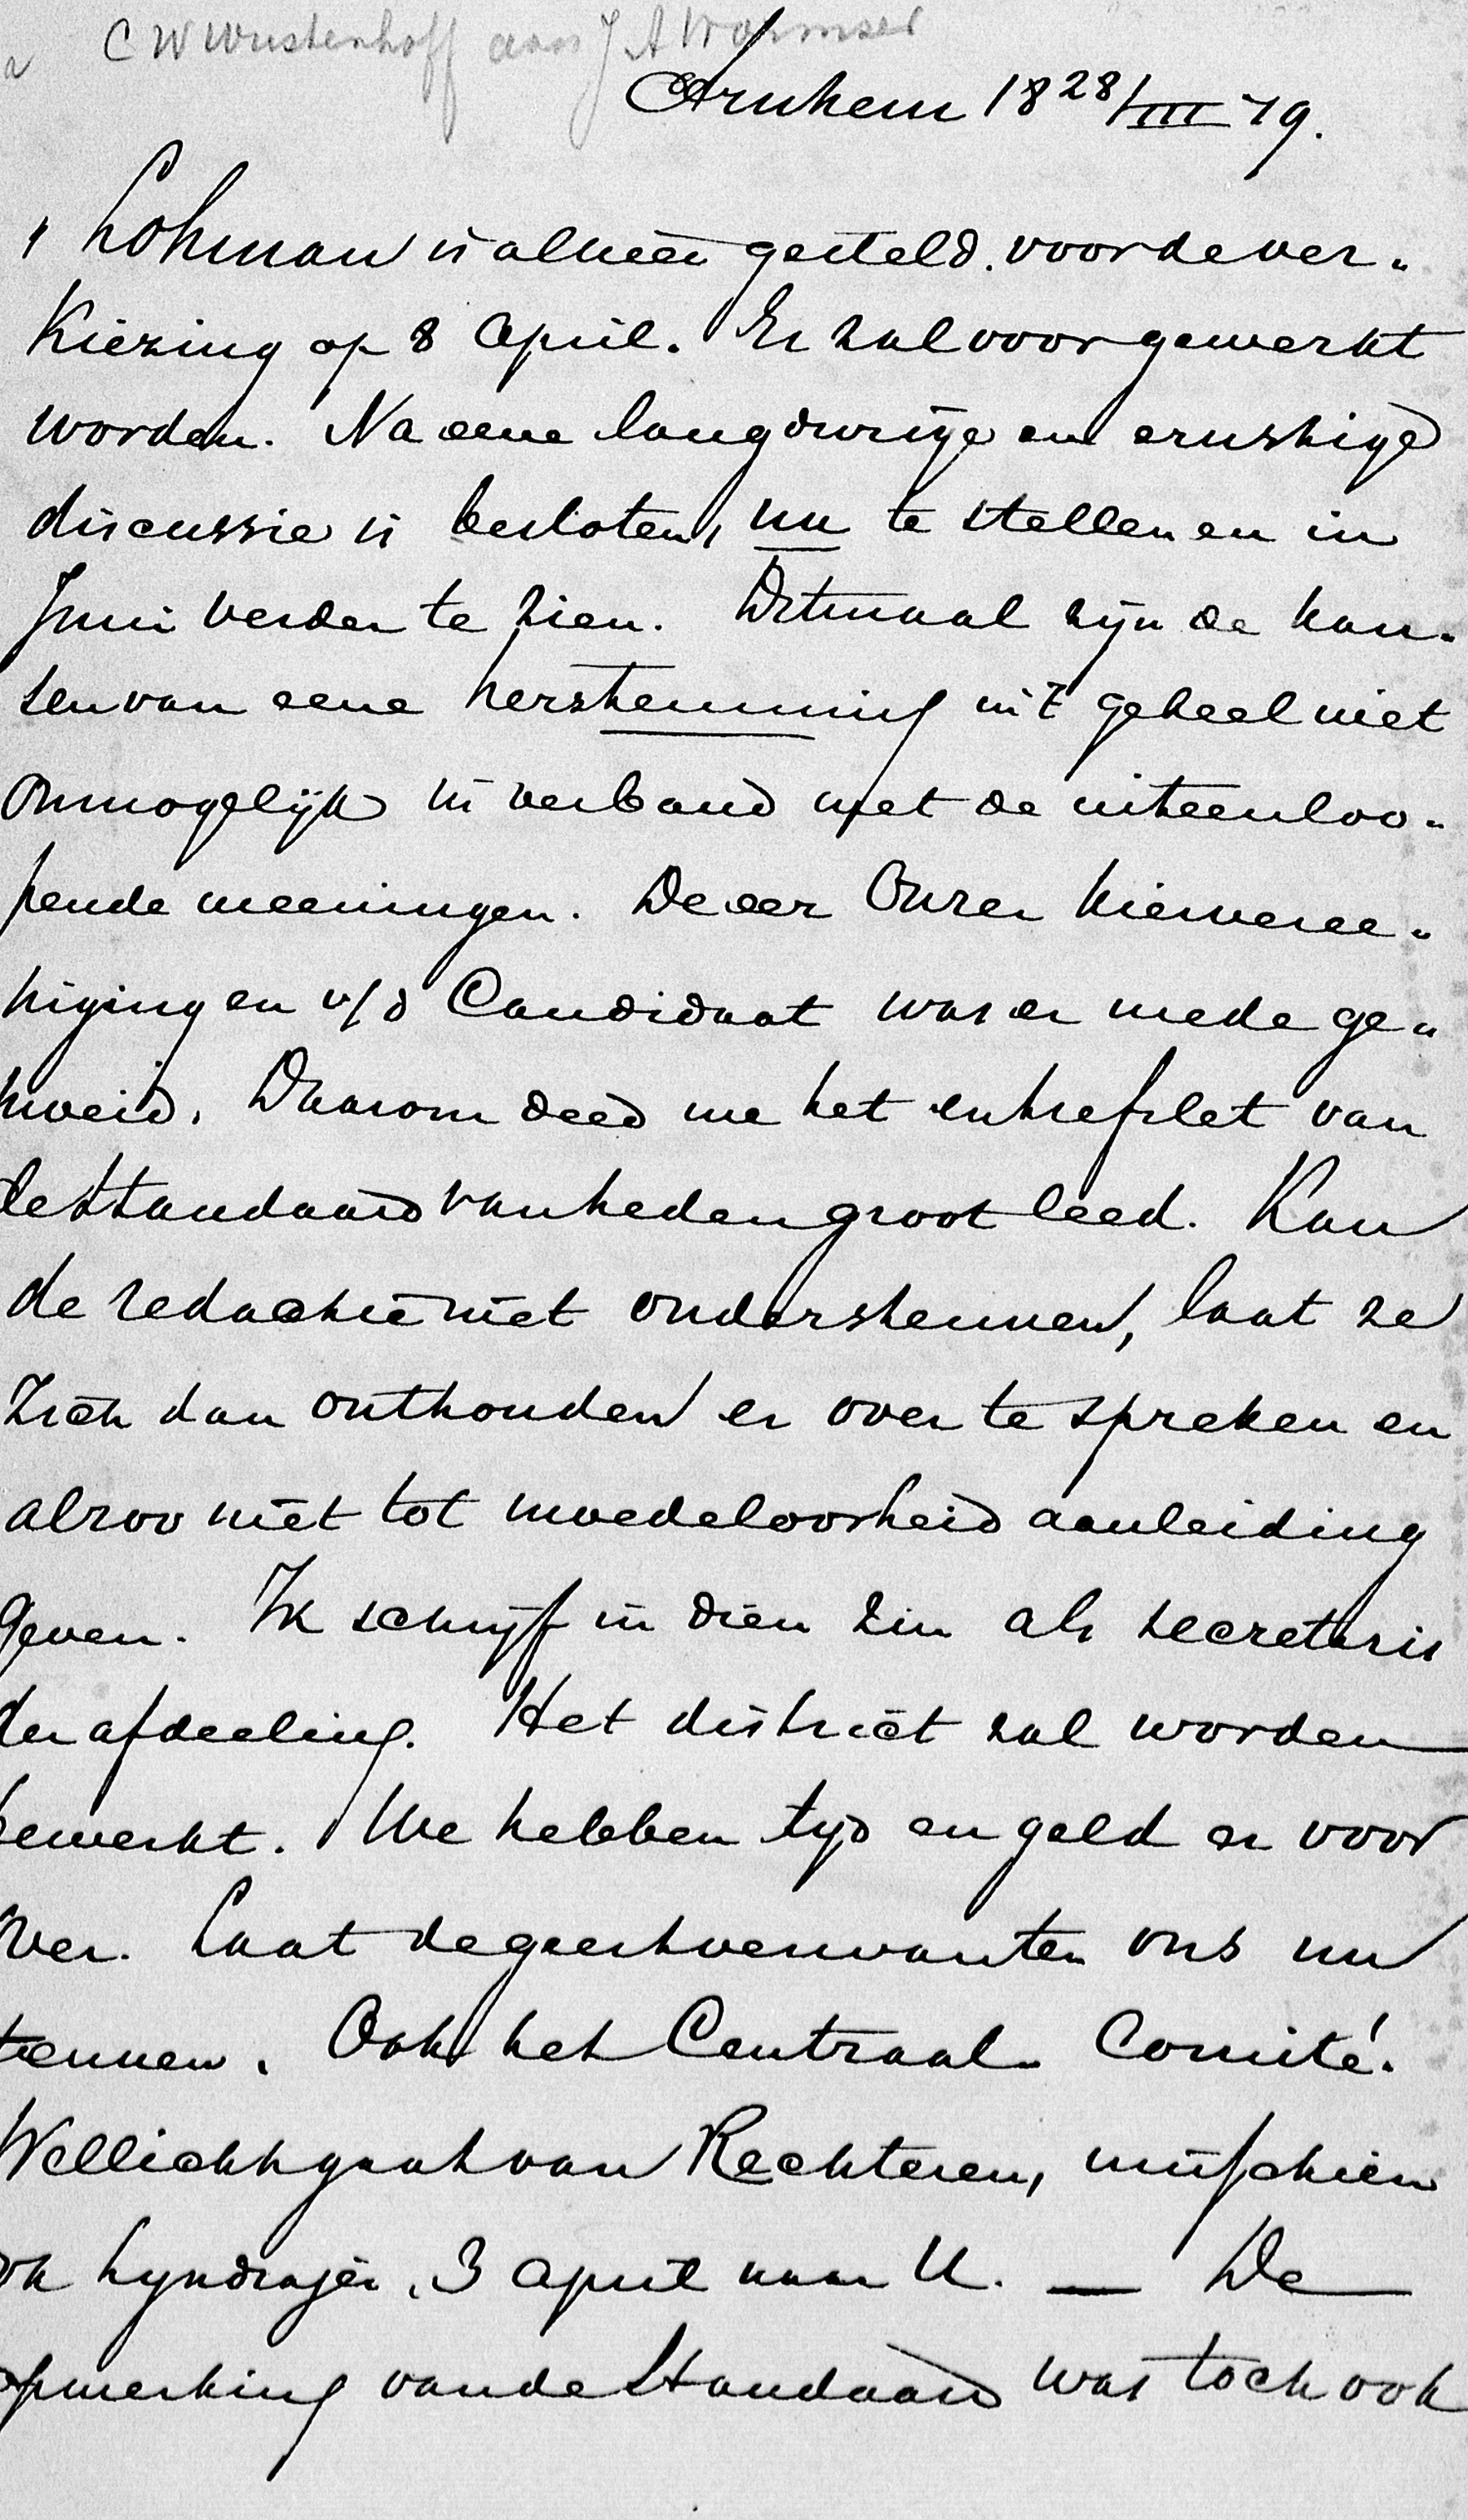 C W Wustenhoff aan J A Wormser
Arnhem 18 28/III 79.
Lohman is alhier gesteld voor de ver-
kiezing op 8 April. Er zal voor gewerkt
worden. Na eene langdurige en ernstige
discussie is besloten, nu te stellen en in
Juni verder te zien. Ditmaal zijn de kan-
sen van eene herstemming niet geheel niet
onmogelijk in verband met de uiteenloo-
pende meeningen. De eer onzer kiesveree-
niging en v/d Candidaat was er mede ge-
moeid. Daarom deed me het entrefilet van
de Standaard van heden groot leed. Kan
de redactie niet ondersteunen, laat ze
zich dan onthouden er over te spreken en
alzoo niet tot moedeloosheid aanleiding
geven. Ik schrijf in dien zin als secretaris
der afdeeling. Het district zal worden
bewerkt. We hebben tijd en geld er voor
over. Laat de geestverwanten ons nu
steunen. Ook het Centraal Comité.
Wellicht gaat van Rechteren, misschien
ook Lyndrajer, 3 April naar U. — De
opmerking van de Standaard was toch ook